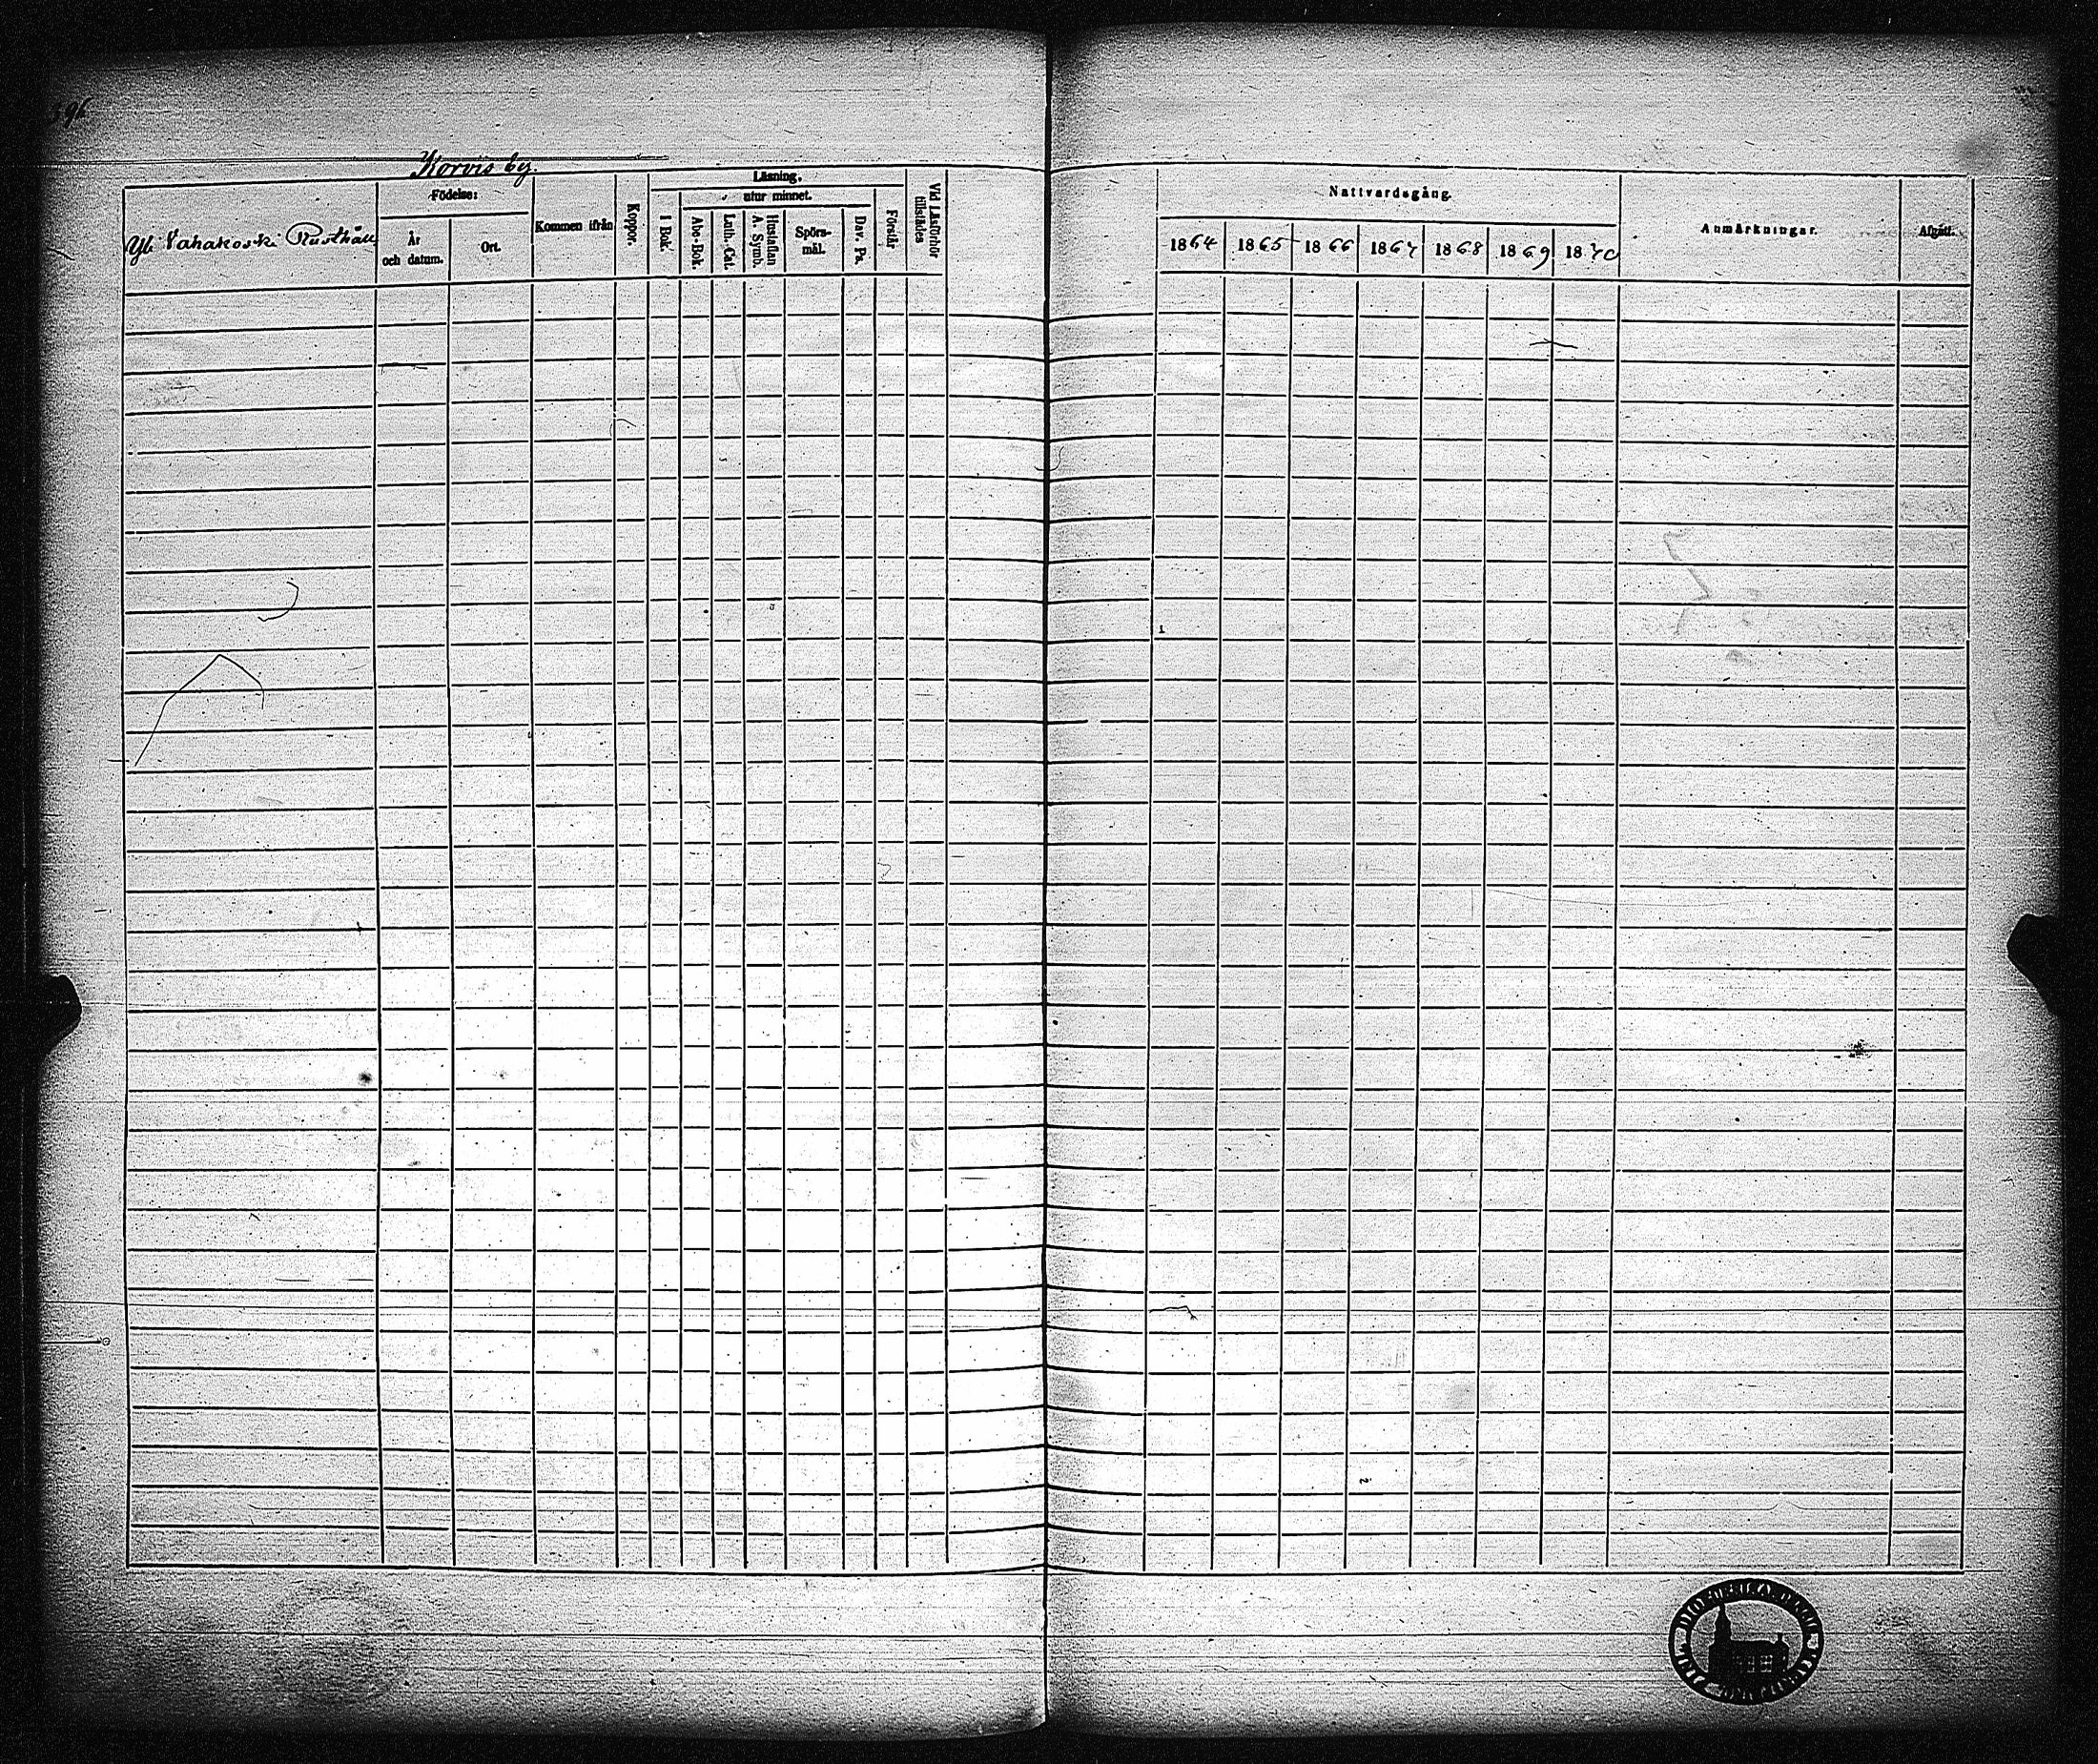 Korvis by.
Yli Vahakoski Rusthåll
Födelse:
År
och datum.
Ort.
Kommen ifrån
Koppor.
Läsning.
utur minnet.
I Bok.
Abc-Bok.
Luth. Cat.
Hustaflan
A. Symb.
Spörs-
mål.
Dav. Ps.
Förstår
Vid Läsförhör
tillstädes
Nattvardsgång.
1864
1865
1866
1867
1868
1869
1870
Anmärkningar.
Afgått.